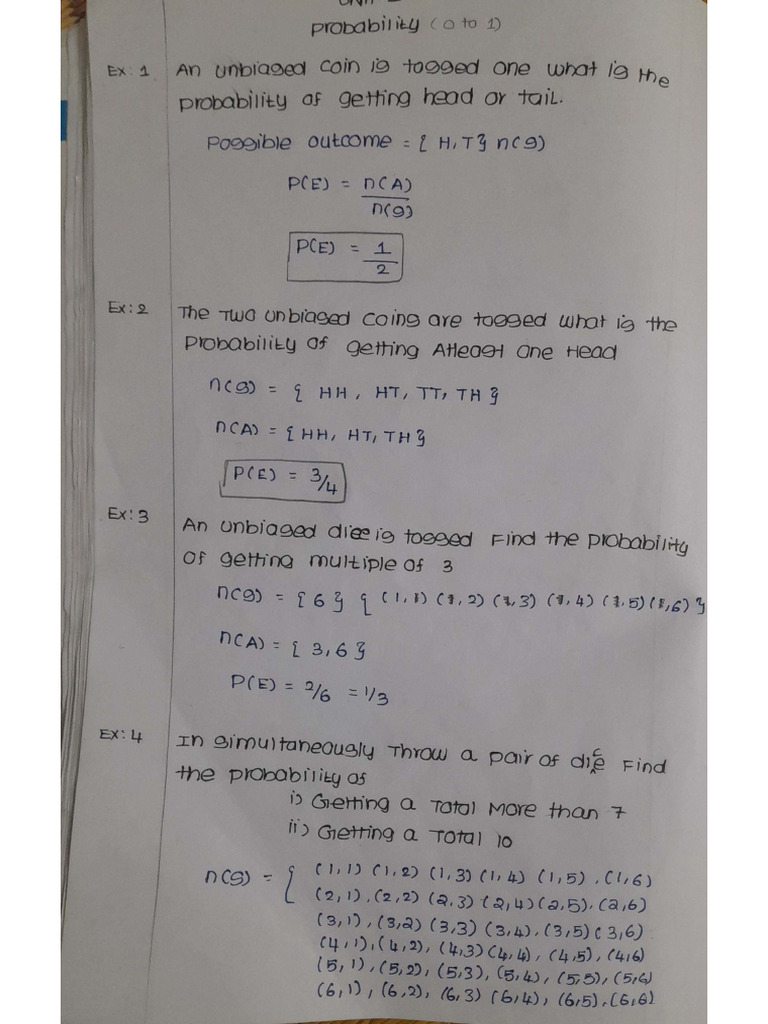 Probability (0 to 1)
Ex: 1 An unbiased coin is tossed one what is the
probability of getting head or tail.
Possible outcome = { H, T } n(s)
P(E) = n(A)
n(s)
P(E) = 1
2
Ex: 2 The Two unbiased coins are tossed what is the
Probability of getting Atleast one Head
n(s) = { HH, HT, TT, TH }
n(A) = { HH, HT, TH }
P(E) = 3/4
Ex: 3 An unbiased dice is tossed Find the probability
of getting multiple of 3
n(s) = { 6 } { (1,1) (1,2) (1,3) (1,4) (1,5) (1,6) }
n(A) = { 3, 6 }
P(E) = 2/6 = 1/3
Ex: 4 In simultaneously Throw a pair of dice Find
the probability of
i) Getting a Total More than 7
ii) Getting a Total 10
n(s) = { (1,1) (1,2) (1,3) (1,4) (1,5), (1,6)
(2,1), (2,2) (2,3) (2,4) (2,5), (2,6)
(3,1), (3,2) (3,3) (3,4), (3,5) (3,6)
(4,1), (4,2), (4,3) (4,4), (4,5), (4,6)
(5,1), (5,2), (5,3), (5,4), (5,5), (5,6)
(6,1), (6,2), (6,3) (6,4), (6,5), (6,6)